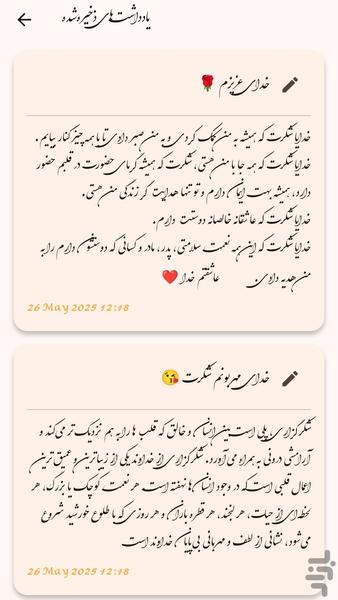 یادداشت‌های ذخیره شده
خدای عزیزم 🌹
خدایا شکرت که همیشه به من کمک کردی و به من صبر دادی تا با همه چیز کنار بیایم.
خدایا شکرت که همه جا با من هستی، شکرت که همیشه گرمای حضورت در قلبم حضور
دارد، همیشه بهت ایمان دارم و تو تنها هدایت گر زندگی من هستی.
خدایا شکرت که عاشقانه خالصانه دوستت دارم.
خدایا شکرت که این همه نعمت سلامتی، پدر، مادر و کسانی که دوستشون دارم را به
من هدیه دادی. عاشقتم خدا ❤️
26 May 2025 12:18
خدای مهربونم شکرت 😘
شکرگزاری پلی است بین انسان و خالق که قلب ها را به هم نزدیک تر می‌کند و
آرامشی درونی به همراه می‌آورد. شکرگزاری از خداوند یکی از زیباترین و عمیق ترین
اعمال قلبی است که در وجود انسان‌ها نهفته است. هر نعمت کوچک یا بزرگ، هر
لحظه‌ای از حیات، هر لبخند، هر قطره باران و هر روزی که با طلوع خورشید شروع
می‌شود، نشانی از لطف و مهربانی بی‌پایان خداوند است
26 May 2025 12:18